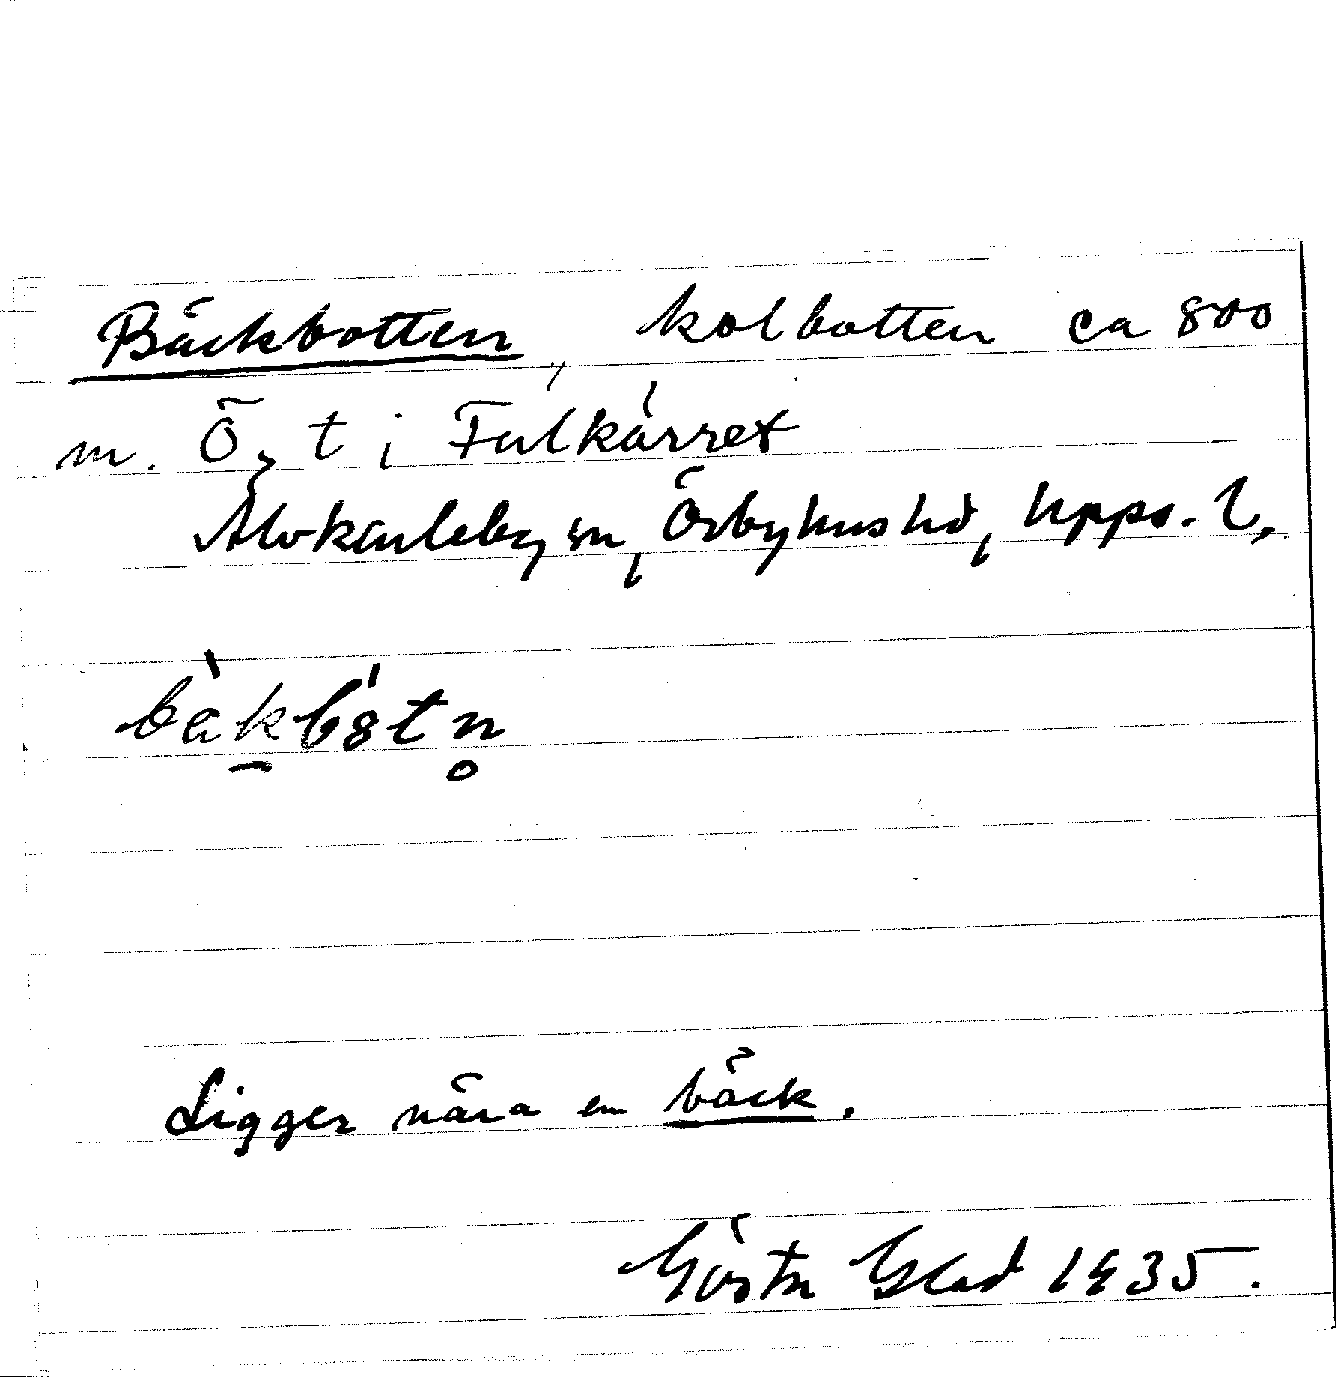 Bäckbotten, kolbotten ca 800
m. Ö, t i Fulkärret
Älvkarleby sn, Örbyhus hd, Upps. l,
Ligger nära en bäck.
Gösta Glad 1935.